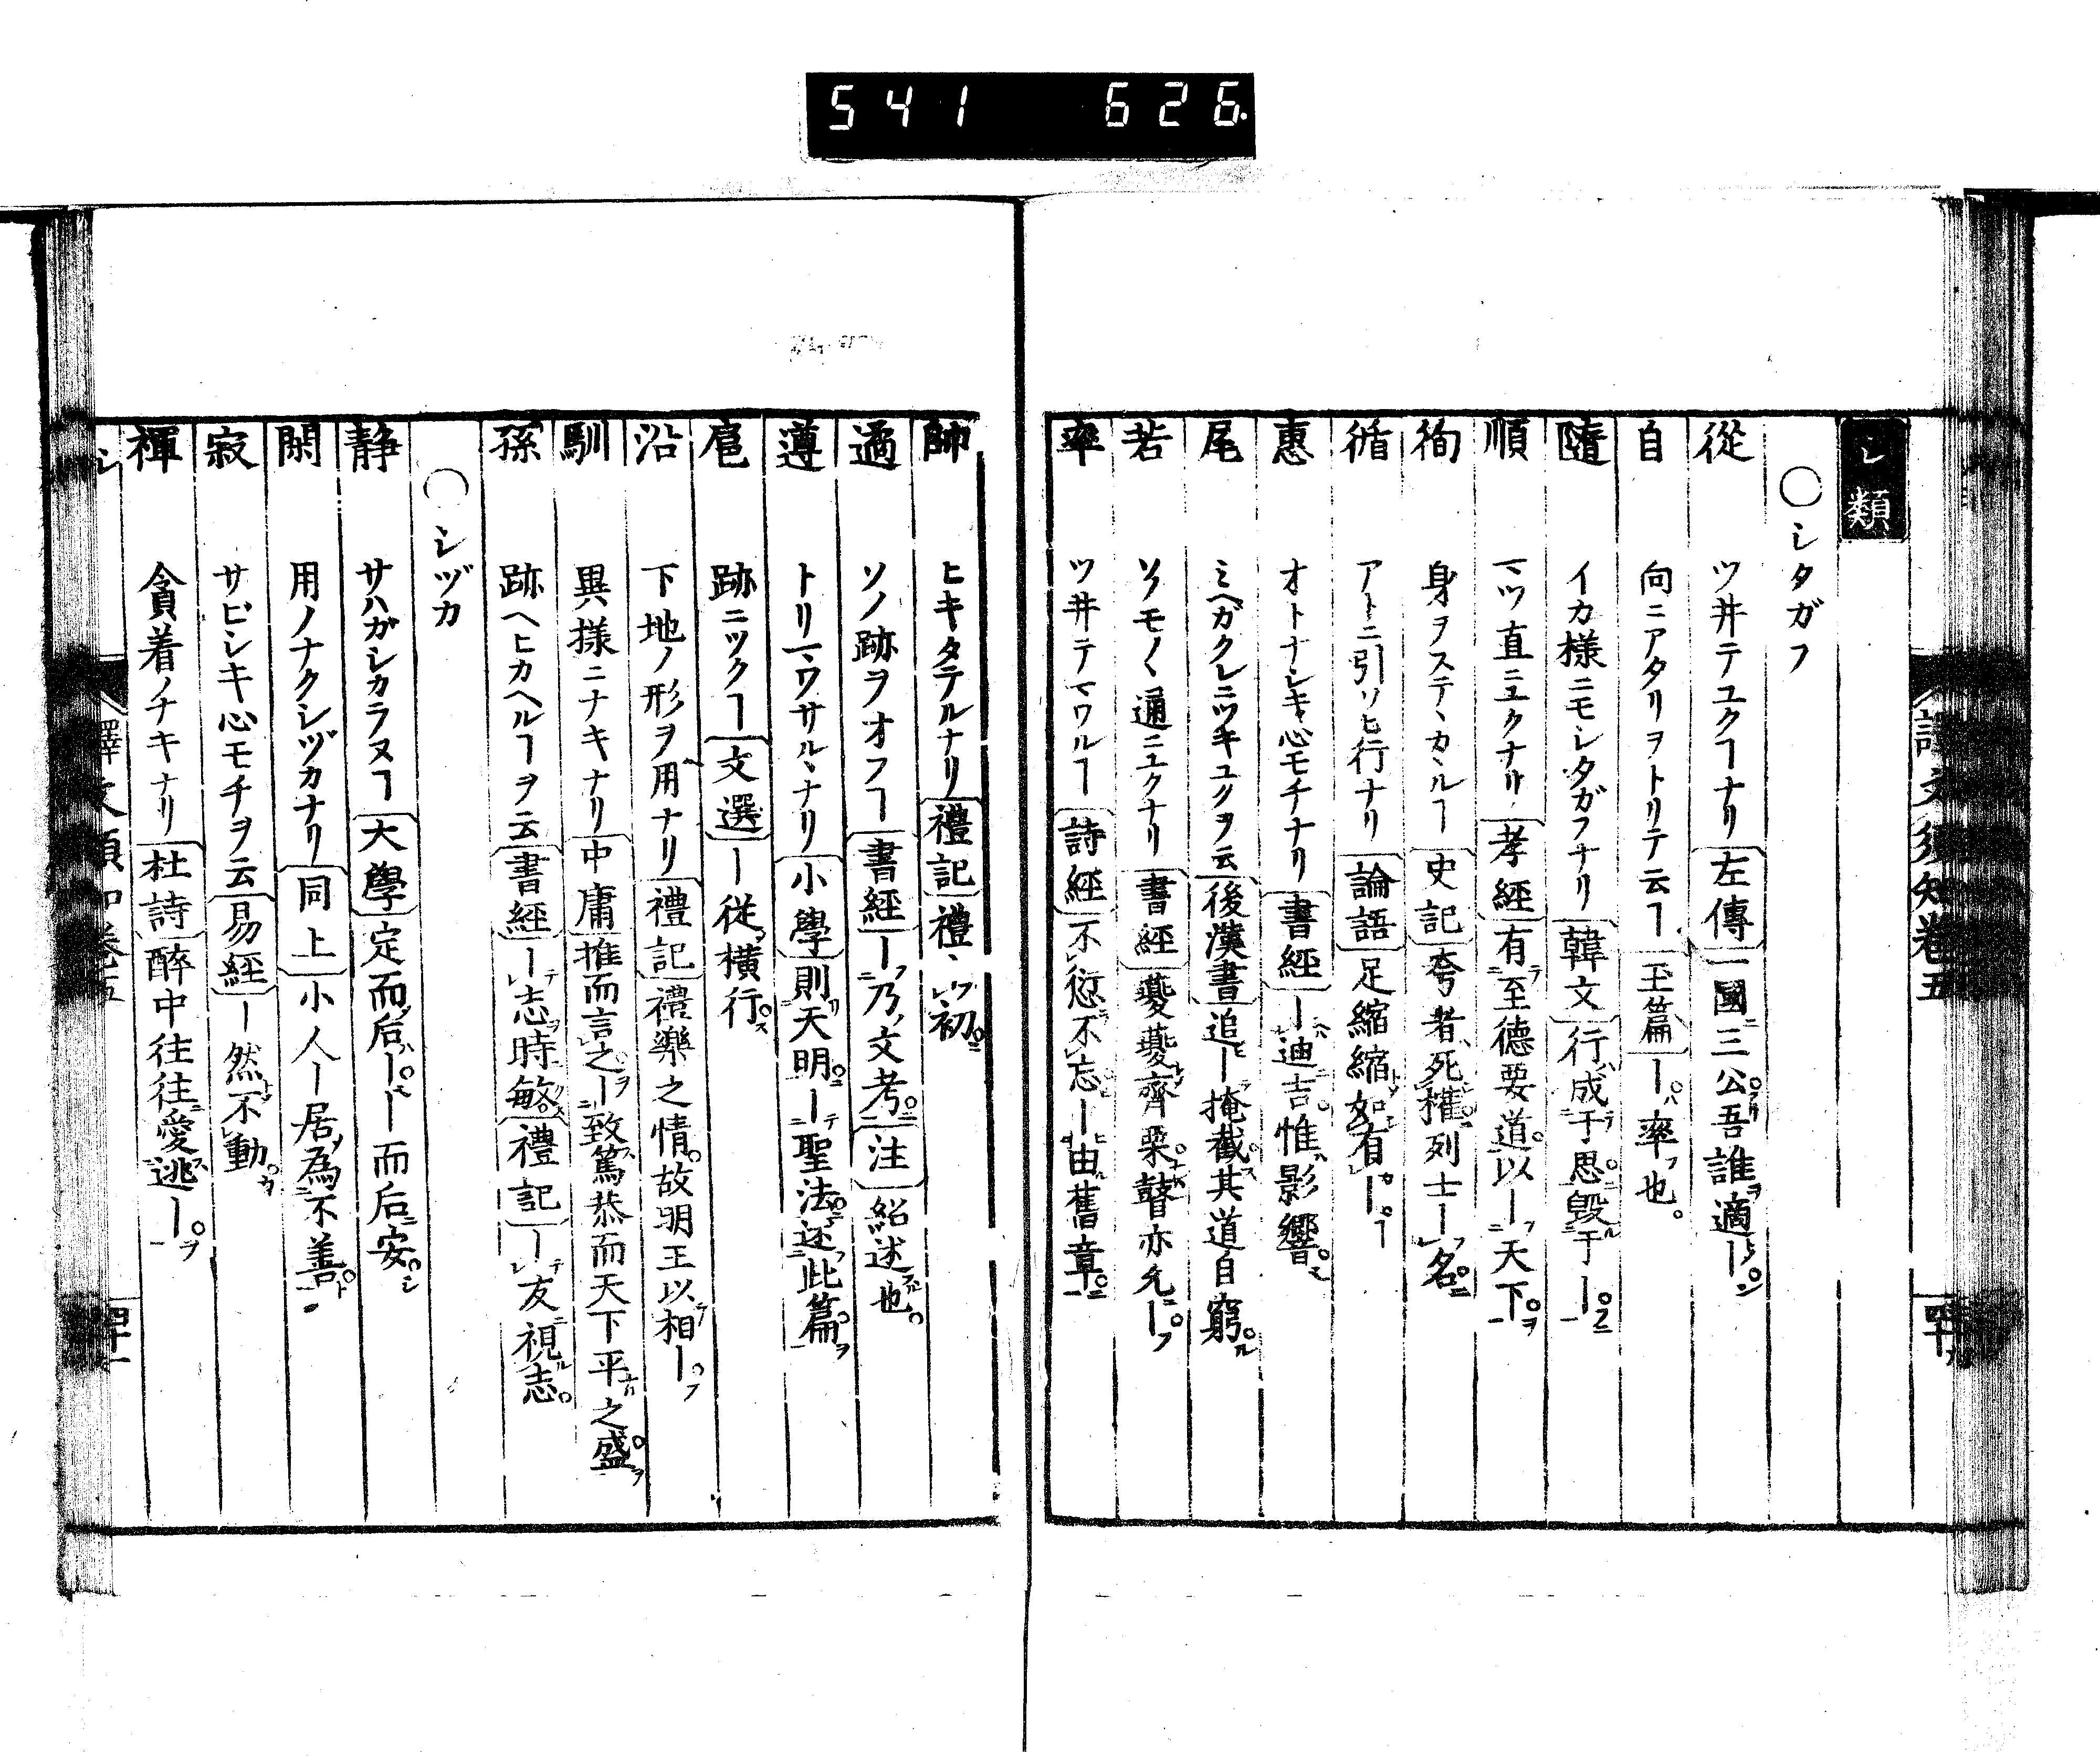 541 626.
譯文須知卷五
四十
シ類
○シタガフ
從 ツ井テユクヿナリ 左傳 一國三公吾誰適ー
自 向ニアタリヲトリテ云ヿ 玉篇 ー率也
隨 イカ様ニモシタガフナリ 韓文 行成于思毀于ー
順 マツ直ニユクナリ 孝經 有至德要道以ー天下
徇 身ヲステヽカヽルヿ 史記 夸者死權列士ー名
循 アトニ引ソヒ行ナリ 論語 足縮縮如有ー
惠 オトナシキ心モチナリ 書經 ー迪吉惟影響
尾 ミヘガクレニツキユクヲ云 後漢書 追ー掩截其道自窮
若 ソノモノヽ通ニユクナリ 書經 夔夔齊栗瞽亦允ー
率 ツ井テマワルヿ 詩經 不愆不忘ー由舊章
帥 ヒキタテルナリ 禮記 禮ヽ初
遹 ソノ跡ヲオフヿ 書經 ー乃文考 注 紹述也
遵 トリマワサルヽナリ 小學 則天明ー聖法述此篇
扈 跡ニツクヿ 文選 ー從橫行
沿 下地ノ形ヲ用ナリ 禮記 禮樂之情故明王以相ー
馴 異様ニナキナリ 中庸 推而言之ー致篤恭而天下平之盛
孫 跡ヘヒカヘルヿヲ云 書經 ー志時敏 禮記 ー友視志
○シヅカ
静 サハガシカラヌヿ 大學 定而后ーー而后安
閑 用ノナクシヅカナリ 同上 小人ー居為不善
寂 サビシキ心モチヲ云 易經 ー然不動
禪 貪着ノナキナリ 杜詩 醉中往往愛逃ー
シ
譯文須知卷五
四十一